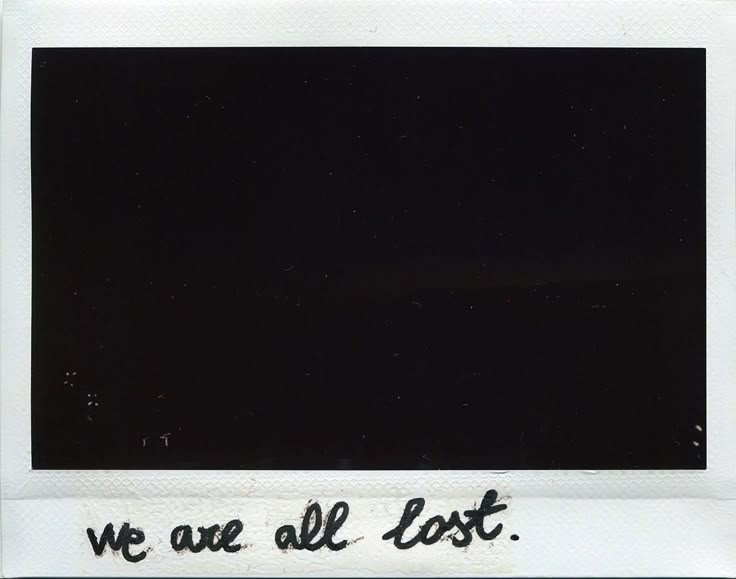 we are all lost.